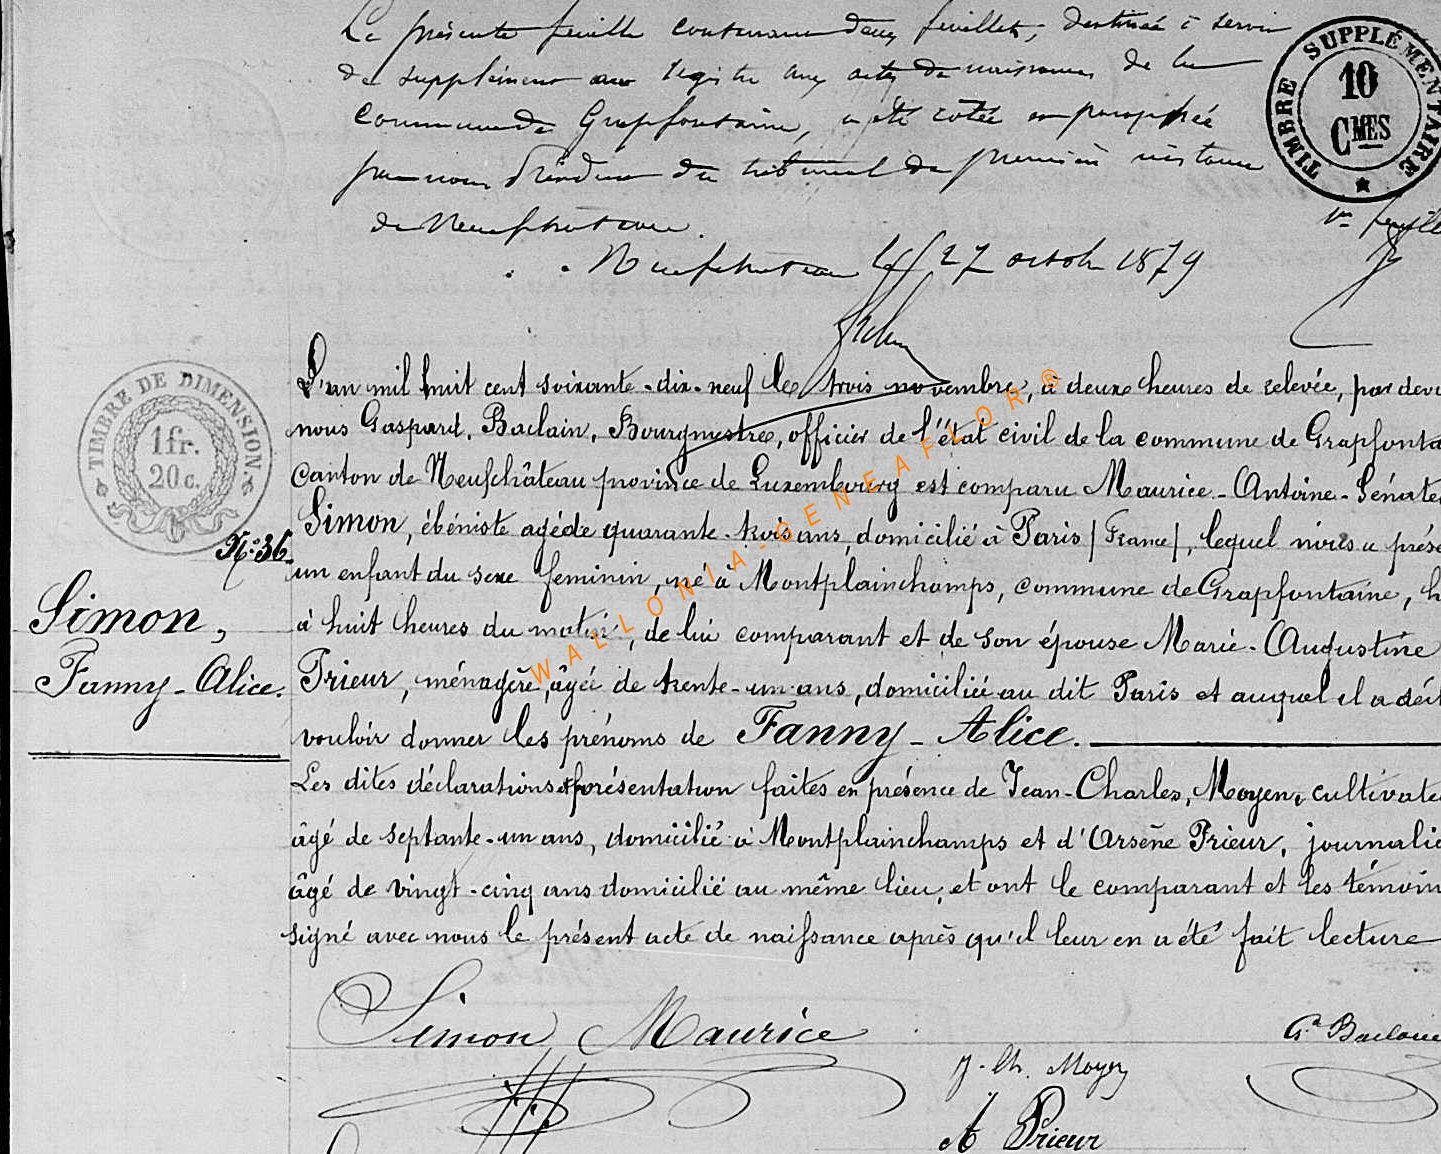 La présente feuille contenant deux feuillets, destinée à servir
de supplément au registre aux actes de naissances de la
Commune de Grapfontaine, a été cotée et paraphée
par nous Président du tribunal de première instance
de Neufchâteau.
Neufchâteau le 27 octobre 1879
TIMBRE SUPPLÉMENTAIRE
10
CMES
1re feuille
TIMBRE DE DIMENSION
1fr.
20c.
L'an mil huit cent soixante-dix-neuf le trois novembre, à deux heures de relevée, par deva
nous Gaspard, Baclain, Bourgmestre, officier de l'état civil de la commune de Grapfonta
Canton de Neufchâteau province de Luxembourg est comparu Maurice-Antoine-Sénate
Simon, ébéniste agé de quarante-trois ans, domicilié à Paris (France), lequel nous a prése
N°:36.
un enfant du sexe feminin, né à Montplainchamps, commune de Grapfontaine, h
Simon,
à huit heures du matin, de lui comparant et de son épouse Marie-Augustine
Fanny-Alice.
Prieur, ménagère, âgée de trente-un-ans, domiciliée au dit Paris et auquel il a décl
vouloir donner les prénoms de Fanny-Alice.
Les dites déclarations et présentation faites en présence de Jean-Charles, Moyen, cultivate
âgé de septante-un ans, domicilié à Montplainchamps et d'Arsène Prieur, journalie
âgé de vingt-cinq ans domicilié au même lieu, et ont le comparant et les témoin
signé avec nous le présent acte de naissance après qu'il leur en a été fait lecture
Simon Maurice
Gd Baclain
J. Ch. Moyen
A Prieur
WALLONIA-GENEAFLOR®